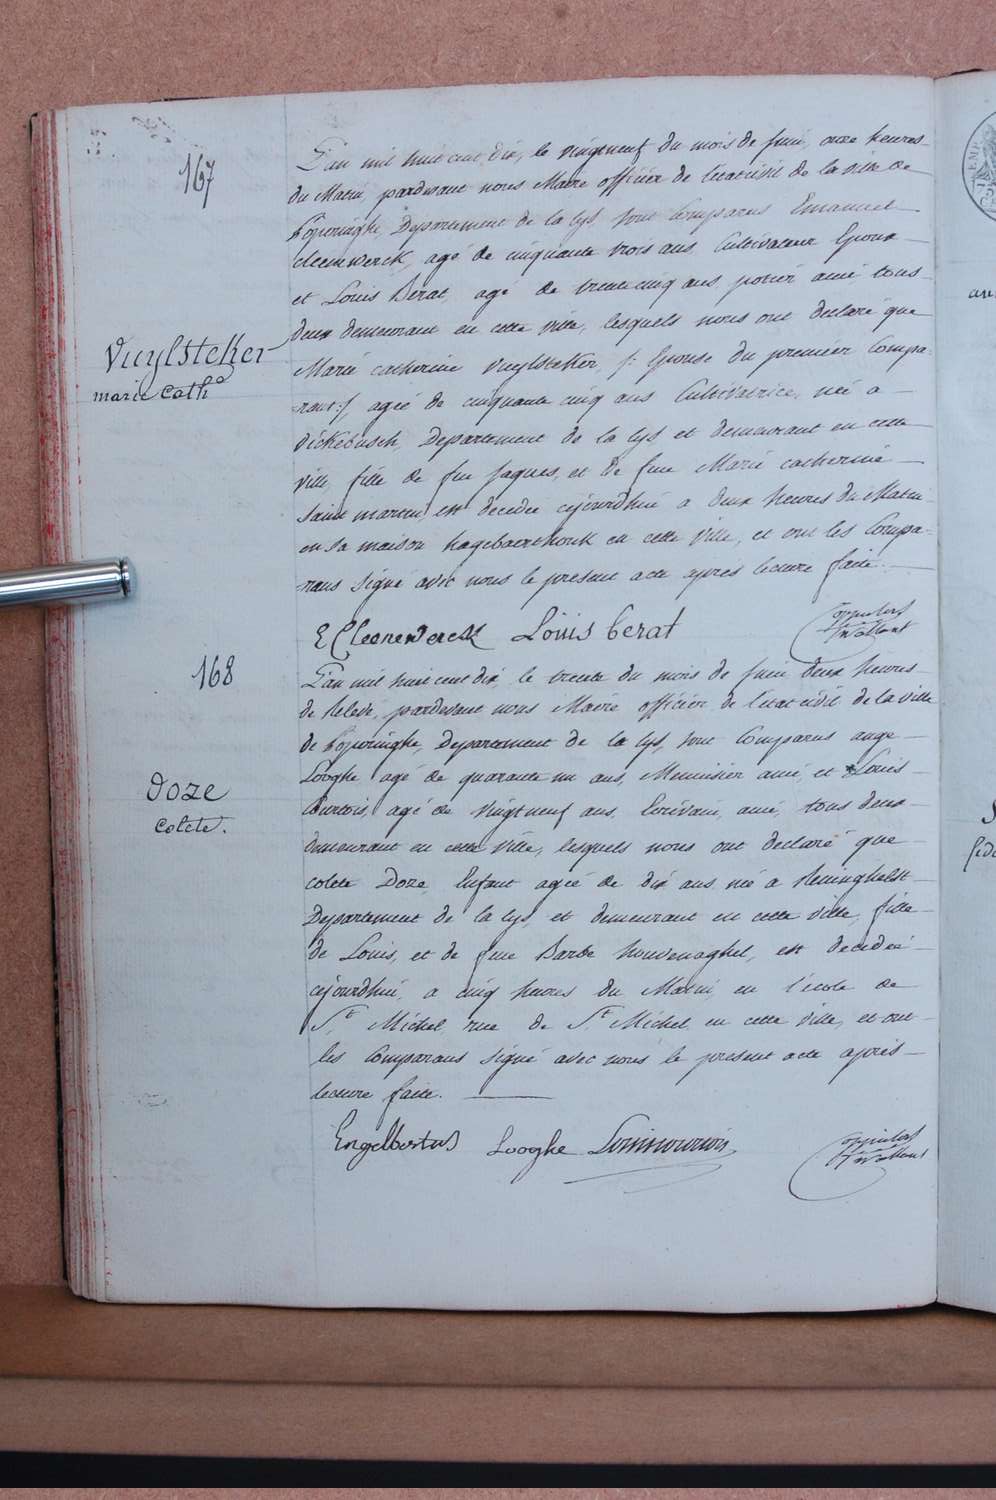 167
L'an mil huit cent dix, le vingtneuf du mois de juin, onze heures
du Matin, pardevant nous Maire officier de l'état civil de la ville de
Poperinghe, Departement de la Lys, sont Comparus Emanuel
Cleenwerck, agé de cinquante trois ans, Cultivateur Epoux
et Louis Berat, agé de trente cinq ans, potier amié, tous
deux demeurant en cette ville, lesquels nous ont declaré que
Vuylsteker
marie Cathe
Marie catherine Vuylsteker, /: Epouse du premier Compa-
rant :/ agée de cinquante cinq ans Cultivatrice, née a
dickebusch, Departement de la Lys et demeurant en cette
ville, fille de feu Jaques, et de feue Marie catherine
Saint martin, est decedée cejourdhui a deux heures du Matin
en sa maison hagebaerthouk en cette ville, et ont les Compa-
rans signé avec nous le present acte apres lecture faite.
E Cleenewerck Louis berat
168
L'an mil huit cent dix, le trente du mois de juin, deux heures
de Relevé, pardevant nous Maire officier de l'état civil de la ville
de Poperinghe, Departement de la Lys, sont Comparus ange
Looghe agé de quarante un ans, Menuisier amié, et Louis
Courtois, agé de vingtneuf ans, Ecrivain, amié, tous deux
Doze
Colete.
demeurant en cette ville, lesquels nous ont declaré que
colete Doze, Enfant agée de dix ans, née a Reninghelst
Departement de la Lys, et demeurant en cette ville, fille
de Louis, et de feue Barbe houvenaghel, est decedée
cejourdhui, a cinq heures du Matin, en l'école de
St. Michel, rue de St. Michel en cette ville, et ont
les Comparans signé avec nous le present acte aprés
lecture faite.
Engelbertus Looghe Louis courtois